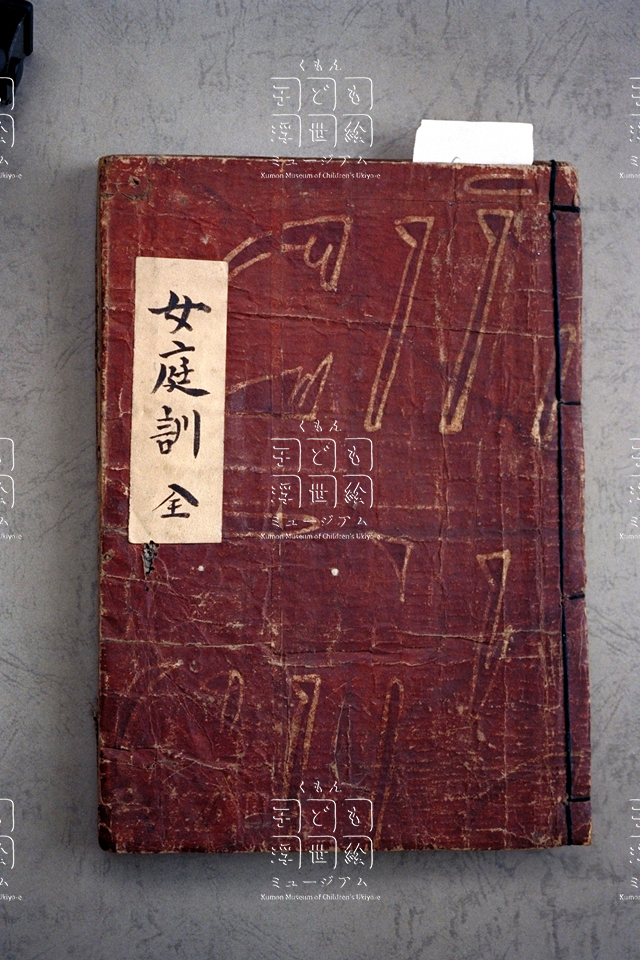 女庭訓 全
くもん
子ども
浮世絵
ミュージアム
Kumon Museum of Children's Ukiyo-e
くもん
子ども
浮世絵
ミュージアム
Kumon Museum of Children's Ukiyo-e
くもん
子ども
浮世絵
ミュージアム
Kumon Museum of Children's Ukiyo-e